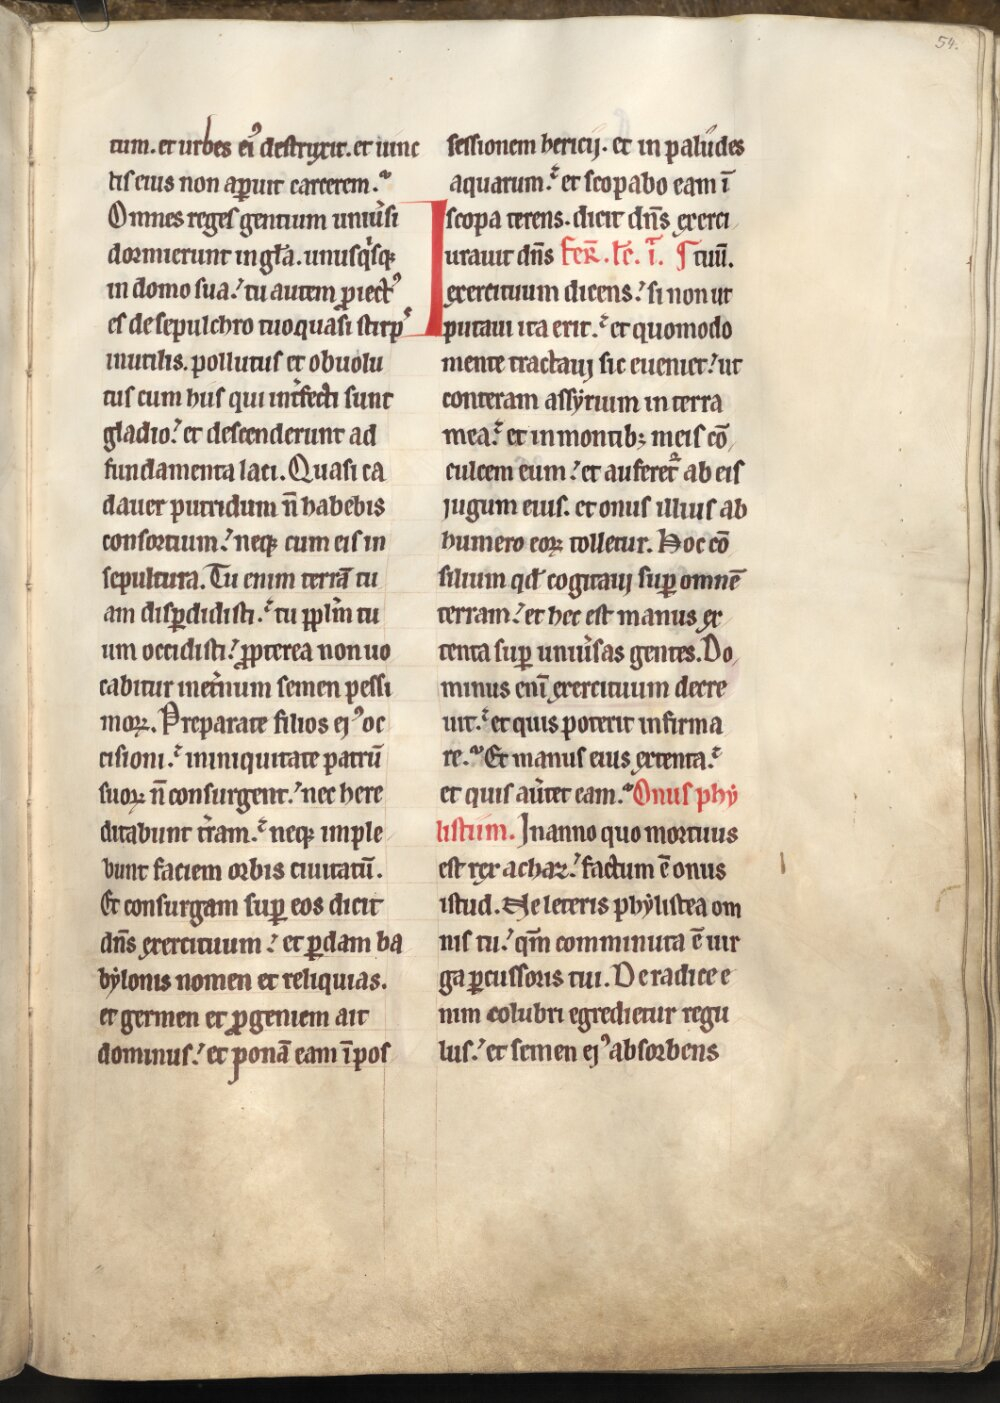 54.
tum. et urbes ei᾽ destruxit. et uinc
tis eius non aꝑuit carcerem.
Omnes reges gentium uniu̾si
dormierunt in gl̄a. unusq͛sꝙ
in domo sua. tu autem ꝓiect᾽
es de sepulchro tuo quasi stirp᾽
inutilis. pollutus et obuolu
tus cum hiis qui int̾fecti sunt
gladio. et descenderunt ad
fundamenta laci. Quasi ca
dauer putridum n̄ habebis
consortium. neqꝫ cum eis in
sepultura. Tu enim terrā tu
am disꝑdidisti. tu ppl̄m tu
um occidisti. ꝓpterea non uo
cabitur inet̾num semen pessi
moꝝ. Preparate filios ej᾽ oc
cisioni. in iniquitate patrū
suoꝝ n̄ consurgent. nec here
ditabunt t̾ram. neqꝫ imple
bunt faciem orbis ciuitatū.
Et consurgam suꝑ eos dicit
dn̄s exercituum. et ꝑdam ba
bylonis nomen et reliquias.
et germen et ꝓgeniem ait
dominus. et ponā eam ī pos
sessionem hericij. et in paludes
aquarum. et scopabo eam ī
scopa terens. dicit dn̄s exerci
Iurauit dn̄s Fer̄. lc̄. i. ¶ tuū.
exercituum dicens. si non ut
putaui ita erit. et quomodo
mente tractauj sic eueniet. ut
conteram assyrium in terra
mea. et in montibꝫ meis cō
culcem eum. et auferet᷑ ab eis
jugum eius. et onus illius ab
humero eoꝝ tolletur. Hoc cō
silium qd̄ cogitauj suꝑ omnē
terram. et hec est manus ex
tenta suꝑ uniu̾sas gentes. Do
minus eni̅ exercituum decre
uit. et quis poterit infirma
re. Et manus eius extenta.
et quis au̾tet eam. Onus phy
listiim. In anno quo mortuus
est rex achaz. factum ē onus
istud. Ne leteris phylistea om
nis tu. qm̄ comminuta ē uir
ga ꝑcussoris tui. De radice e
nim colubri egredietur regu
lus. et semen ej᾽ absorbens